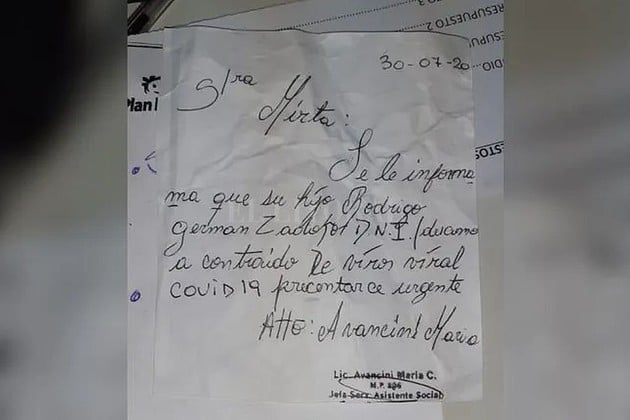 30-07-20
S/ra
Mirta:
Se le informa
ma que su hijo Rodrigo
german D.N.I.
a contraido De viros viral
COVID 19 precentarce urgente
Atte: Avancini Maria
Lic. Avancini Maria C.
M.P. 896
Jefa Serv. Asistente Social
Plan
RESUPUESTO 2